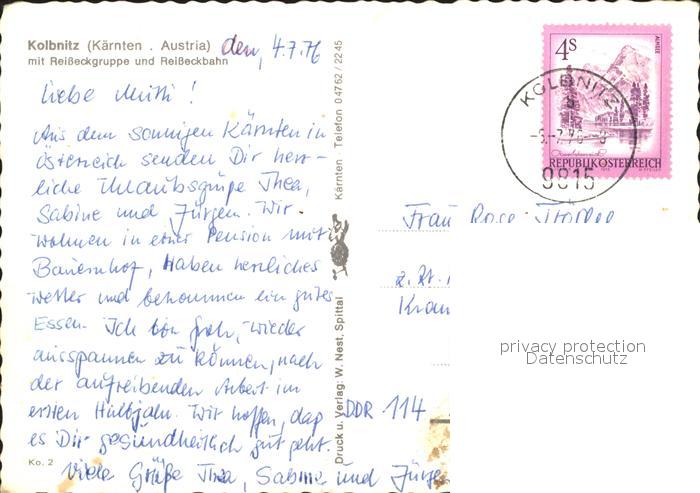 Kolbnitz (Kärnten . Austria) den, 4.7.76
mit Reißeckgruppe und Reißeckbahn
Liebe Mutti !
Aus dem sonnigen Kärnten in
Österreich senden Dir herz-
liche Urlaubsgrüße Thea,
Sabine und Jürgen. Wir
wohnen in einer Pension mit
Bauernhof, Haben herrliches
Wetter und bekommen ein gutes
Essen. Ich bin froh, wieder
ausspannen zu können, nach
der aufreibenden Arbeit im
ersten Halbjahr. Wir hoffen, daß
es Dir gesundheitlich gut geht.
Viele Grüße Thea, Sabine und Jürge
Ko. 2
Druck u. Verlag: W. Nest, Spittal
Kärnten Telefon 04762/2245
4s
ALMSEE
REPUBLIK ÖSTERREICH
KOLBNITZ
9815
Frau Rose
z. Zt.
Kran
DDR 114
privacy protection
Datenschutz